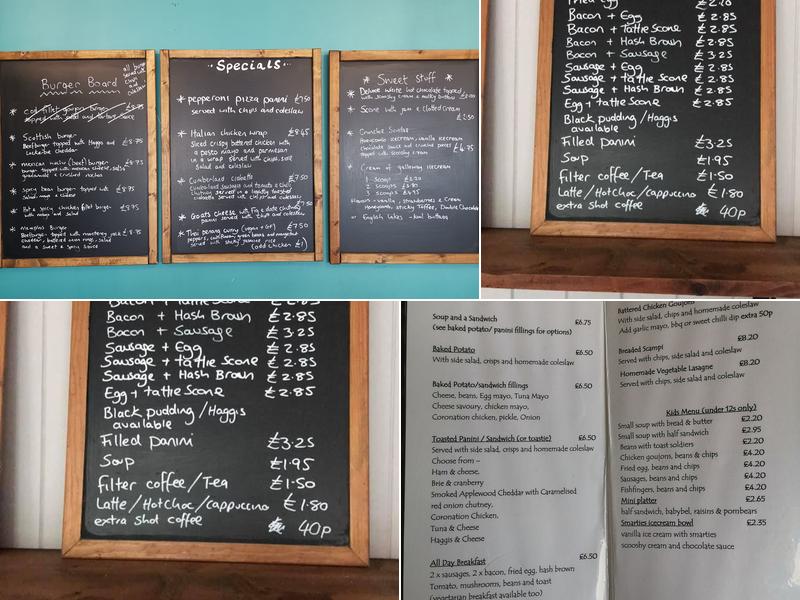 Burger Board
all burgers served with chips and coleslaw
* Cod fillet burger
topped with salad and tartare sauce
* Scottish burger
Beefburger topped with Haggis and cheddar £8.75
* mexican nacho (beef) burger £8.75
burger topped with mexican cheese, salsa
guacamole & crushed nachos
* spicy bean burger topped with £8.75
salad mayo & cheese
* Hot & spicy chicken fillet burger £8.75
with mayo and salad
* Memphis Burger
Beefburger topped with monterey jack £8.75
cheddar, battered onion rings, salad
and a sweet & spicy sauce
·· Specials ··
* pepperoni pizza panini £7.50
served with chips and coleslaw
* Italian chicken wrap £8.45
sliced crispy battered chicken with
a pesto mayo and parmesan
in a wrap served with chips, side
salad and coleslaw
* Cumberland ciabatta £7.50
Cumberland sausages and tomato & chilli
chutney served in a lightly toasted
ciabatta served with chips and coleslaw
* Goats cheese with fig & date chutney £7.50
panini served with chips and coleslaw
* Thai penang curry (vegan + GF) £7.50
peppers, cauliflower, green beans and mangetout
served with sticky jasmine rice
(add chicken £1)
* Sweet Stuff *
* Deluxe white hot chocolate topped
with squirty cream & milky buttons
* Scone with jam & clotted cream
£2.50
* Crunchie Sundae
Honeycomb icecream, vanilla icecream
chocolate sauce and crunchie pieces
topped with scooshy cream £4.75
* Cream of galloway icecream
1 Scoop £2.20
2 Scoops
3 Scoops
Flavours - vanilla, strawberries & cream
Honeycomb, sticky toffee, Double chocolate
or English Lakes - kool buttons
Fried egg £2.20
Bacon + Egg £2.85
Bacon + Tattie Scone £2.85
Bacon + Hash Brown £2.85
Bacon + Sausage £3.25
Sausage + Egg £2.85
Sausage + tattie Scone £2.85
Sausage + Hash Brown £2.85
Egg + tattie Scone £2.85
Black pudding / Haggis
available
Filled Panini £3.25
Soup £1.95
Filter coffee / Tea £1.50
Latte / HotChoc / cappuccino £1.80
extra shot coffee 40p
Bacon + Tattie Scone £2.85
Bacon + Hash Brown £2.85
Bacon + Sausage £3.25
Sausage + Egg £2.85
Sausage + tattie Scone £2.85
Sausage + Hash Brown £2.85
Egg + tattie Scone £2.85
Black pudding / Haggis
available
Filled Panini £3.25
Soup £1.95
Filter coffee / Tea £1.50
Latte / HotChoc / cappuccino £1.80
extra shot coffee 40p
Soup and a Sandwich £6.75
(see baked potato/ panini fillings for options)
Baked Potato £6.50
With side salad, crisps and homemade coleslaw
Baked Potato/sandwich fillings £6.50
Cheese, beans, Egg mayo, Tuna Mayo
Cheese savoury, chicken mayo,
Coronation chicken, pickle, Onion
Toasted Panini / Sandwich (or toastie) £6.50
Served with side salad, crisps and homemade coleslaw
Choose from –
Ham & cheese,
Brie & cranberry
Smoked Applewood Cheddar with Caramelised
red onion chutney,
Coronation Chicken,
Tuna & Cheese
Haggis & Cheese
All Day Breakfast £6.50
2 x sausages, 2 x bacon, fried egg, hash brown
Tomato, mushrooms, beans and toast
(vegetarian breakfast available too)
Battered Chicken Goujons
With side salad, chips and homemade coleslaw
Add garlic mayo, bbq or sweet chilli dip extra 50p
Breaded Scampi £8.20
Served with chips, side salad and coleslaw
Homemade Vegetable Lasagne £8.20
Served with chips, side salad and coleslaw
Kids Menu (under 12s only)
Small soup with bread & butter £2.20
Small soup with half sandwich £2.95
Beans with toast soldiers £2.20
Chicken goujons, beans & chips £4.20
Fried egg, beans and chips £4.20
Sausages, beans and chips £4.20
Fishfingers, beans and chips £4.20
Mini platter £2.65
half sandwich, babybel, raisins & pombears
Smarties icecream bowl £2.35
vanilla ice cream with smarties
scooshy cream and chocolate sauce